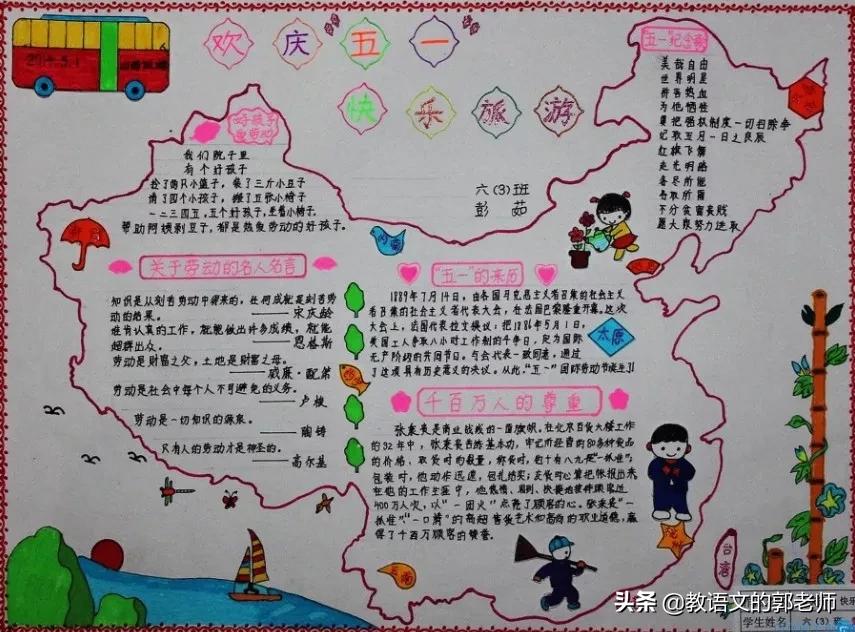 欢庆五一
快乐旅游
2014.5.1
六(3)班
彭茹
好孩子
爱劳动
我们院子里
有个好孩子
捡了两只小篮子，装了三斤小豆子
请了四个小孩子，搬了五张小椅子
一二三四五，五个好孩子，坐着小椅子
帮助阿姨剥豆子，都是热爱劳动的好孩子。
"五一"纪念
美哉自由
世界明星
拼吾热血
为他牺牲
要把强权制度一切扫除净
记取五月一日之良辰
红旗飞舞
走光明路
各尽所能
各取所需
不分贫富贵贱
愿大家努力进取
关于劳动的名人名言
知识是从刻苦劳动中得来的，任何成就是刻苦劳
动的结果。
——宋庆龄
谁肯认真的工作，就能做出许多成绩，就能
超群出众。
——恩格斯
劳动是财富之父，土地是财富之母。
——威廉·配第
劳动是社会中每个人不可避免的义务。
——卢梭
劳动是一切知识的源泉。
——陶铸
只有人的劳动才是神圣的。
——高尔基
"五一"的来历
1889年7月14日，由各国马克思主义者召集的社会主义
者代表大会，在法国巴黎隆重开幕。这次
大会上，法国代表拉文提议：把1886年5月1日，
美国工人争取八小时工作制的斗争日，定为国际
无产阶级的共同节日。与会代表一致同意，通过
了这项具有历史意义的决议。从此，"五一"国际劳动节诞生了！
太原
千百万人的尊重
张秉贵是商业战线的一面旗帜。在北京百货大楼工作
的32年中，张秉贵苦练基本功，牢记所经营的80多种食品
包装时，他动作迅速，包扎结实；
400万人次，以"一团火"点亮了顾客的心。张秉贵"一
抓准"、"一口清"的高超售货艺术和高尚的职业道德，赢
得了千百万顾客的赞誉。
台湾
头条 @教语文的郭老师
快乐
学生姓名
六(3)班